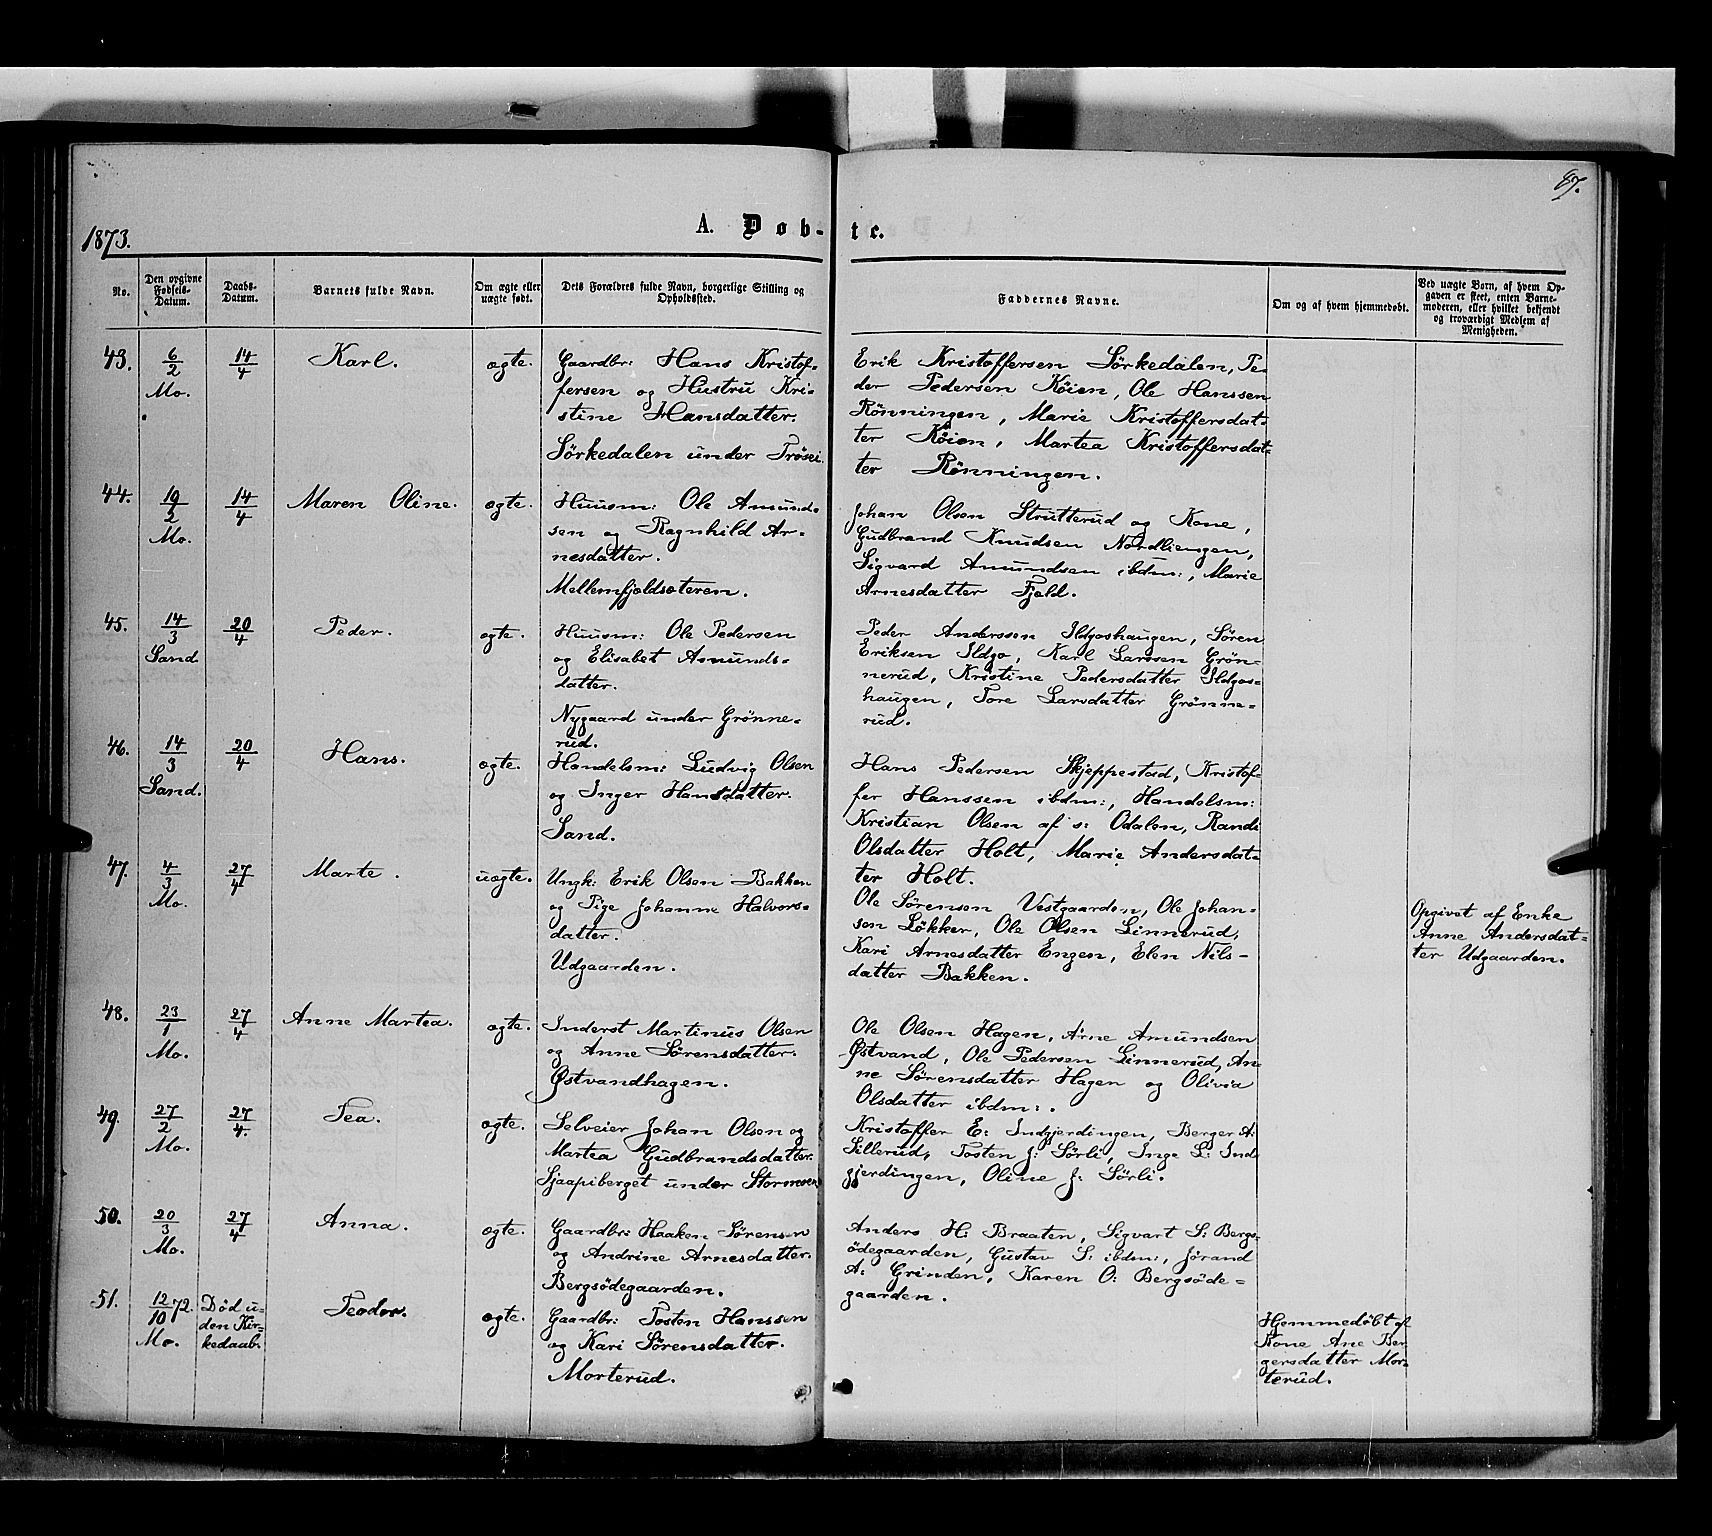 87.
1873.
A. Døb-te.
No.
Den opgivne Fødsels-Datum.
Daabs-Datum.
Barnets fulde Navn.
Om ægte eller uægte født.
Dets Forældres fulde Navn, borgerlige Stilling og Opholdssted.
Faddernes Navne.
Om og af hvem hjemmedøbt.
Ved uægte Børn, af hvem Opgaven er skeet, enten Barnemoderen, eller hvilket bekjendt og troværdigt Medlem af Menigheden.
43.
6/2
Mo.
14/4
Karl.
ægte.
Gaardbr: Hans Kristof-
fersen og Hustru Kri-
stine Hansdatter.
Sörkedalen under Trösei.
Erik Kristoffersen Sörkedalen, Pe-
der Pedersen Köien, Ole Hanssen
Rönningen, Marie Kristoffersdat-
ter Köien, Martea Kristoffersdat-
ter Rönningen.
44.
19/2
Mo.
14/4
Maren Oline.
ægte.
Huusm: Ole Amund-
sen og Ragnhild Ar-
nesdatter.
Mellemfjeldsæteren.
Johan Olsen Strutterud og Kone,
Gudbrand Knudsen Nordliengen,
Sigvard Amundsen ibdm:, Marie
Arnesdatter Fjeld.
45.
14/3
Sand
20/4
Peder.
ægte.
Huusm: Ole Pedersen
og Elisabet Amunds-
datter.
Nygaard under Grönne-
rud.
Peder Anderssen Ildgoshaugen, Sören
Eriksen Ildgo, Karl Larssen Grön-
nerud, Kristine Pedersdatter Ildgos-
haugen, Tore Larsdatter Grönne-
rud.
46.
14/3
Sand.
20/4
Hans.
ægte.
Handelsm: Ludvig Olsen
og Inger Hansdatter.
Sand.
Hans Pedersen Skjeppestad, Kristof-
fer Hanssen ibdm:, Handelsm:
Kristian Olsen af s: Odalen, Randi
Olsdatter Holt, Marie Andersdat-
ter Holt.
47.
4/3
Mo.
27/4
Marte.
uægte.
Ungk: Erik Olsen Bakken
og Pige Johanne Halvors-
datter.
Udgaarden.
Ole Sörensen Vestgaarden, Ole Johan-
sen Løkker, Ole Olsen Linnerud,
Kari Arnesdatter Engen, Elen Nils-
datter Bakken.
Opgivet af Enke
Anne Andersdat-
ter Udgaarden.
48.
23/1
Mo.
27/4
Anne Martea.
ægte.
Inderst Martinus Olsen
og Anne Sörensdatter.
Østvandhagen.
Ole Olsen Hagen, Arne Amundsen
Østvand, Ole Pedersen Linnerud, An-
ne Sörensdatter Hagen og Olivia
Olsdatter ibdm:.
49.
27/2
Mo.
27/4.
Tea.
ægte.
Selveier Johan Olsen og
Martea Gudbrandsdatter.
Sjaapiberget under Stormoen
Kristoffer E: Indgjerdingen, Berger A:
Sillerud, Tosten J: Sörli, Inge L: Ind-
gjerdingen, Oline J: Sörli.
50.
20/3
Mo.
27/4
Anna.
ægte.
Gaardbr: Haaken Sörensen
og Andrine Arnesdatter.
Bergsödegaarden.
Anders H: Braaten, Sigvart S: Bergs-
ödegaarden, Gustav S: ibdm:, Jörand
A: Grinden, Karen O: Bergsöde-
gaarden.
51.
12/10 72.
Mo.
Død u-
den Kir-
kedaab.
Teodor.
ægte.
Gaardbr: Tosten Hanssen
og Kari Sörensdatter.
Morterud.
Hjemmedøbt af
Kone Ane Ber-
gersdatter Mor-
terud.